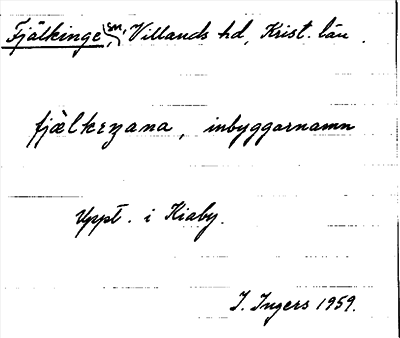 Fjälkinge, sn, Villands hd, Krist. län.
fjälkeɲana, inbyggarnamn
Uppt. i Kiaby.
I. Ingers 1959.